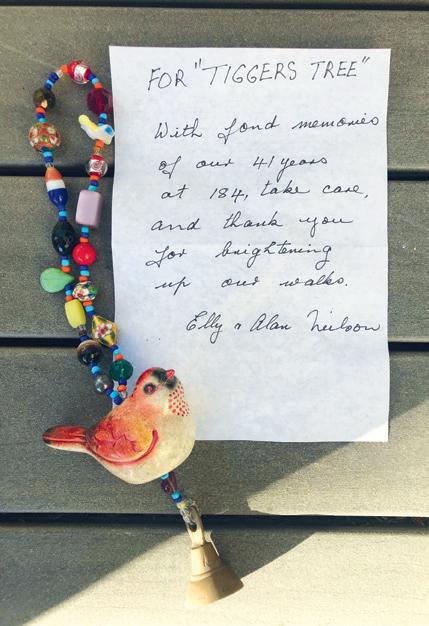 FOR "TIGGERS TREE"
With fond memories
of our 41 years
at 184, take care,
and thank you
for brightening
up our walks.
Elly & Alan Neilson